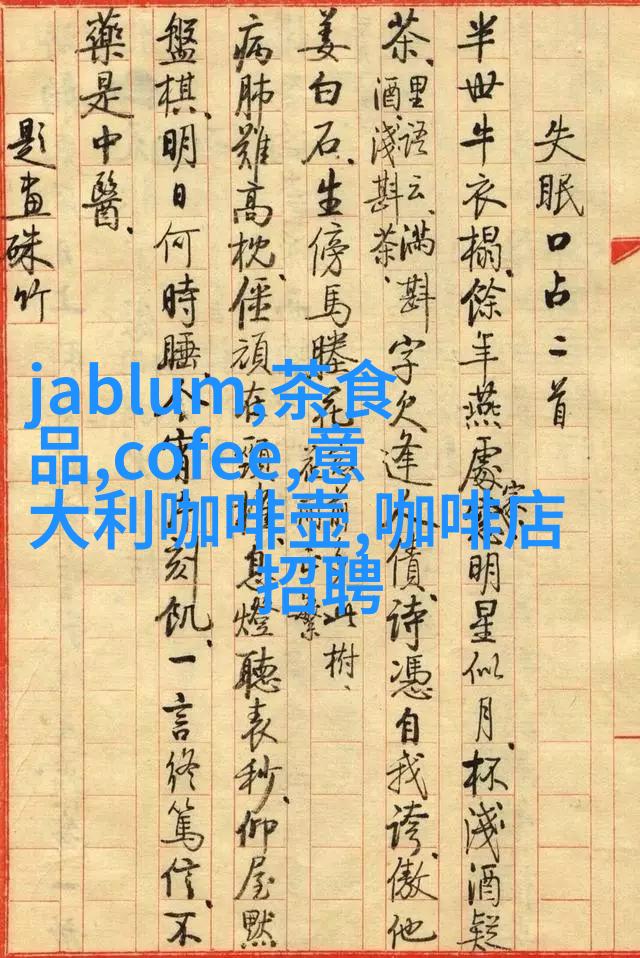 失眠口占二首
半世牛衣榻、餘年燕處
明星似月、杯淺酒疑
茶、里語云、滿斟
酒、淺斟茶、
字欠逢
債、詩憑自我誇、傲他
姜白石、生傍馬塍花
此樹、
繁
病肺難高枕、僵頑在
息燈聽表秒、仰屋默
盤棋、明日何時睡、今宵
刻飢、一言終篤信、不
藥是中醫、
題畫硃竹
jablum,茶食
品,cofee,意
大利咖啡壶,咖啡店
招聘